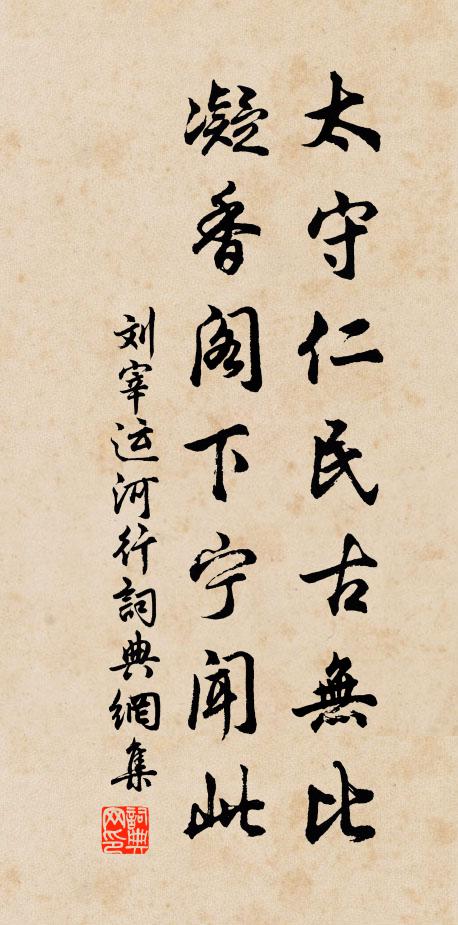 太守仁民古無比
凝香阁下宁闻此
刘宰运河行詞典網集
詞典网印